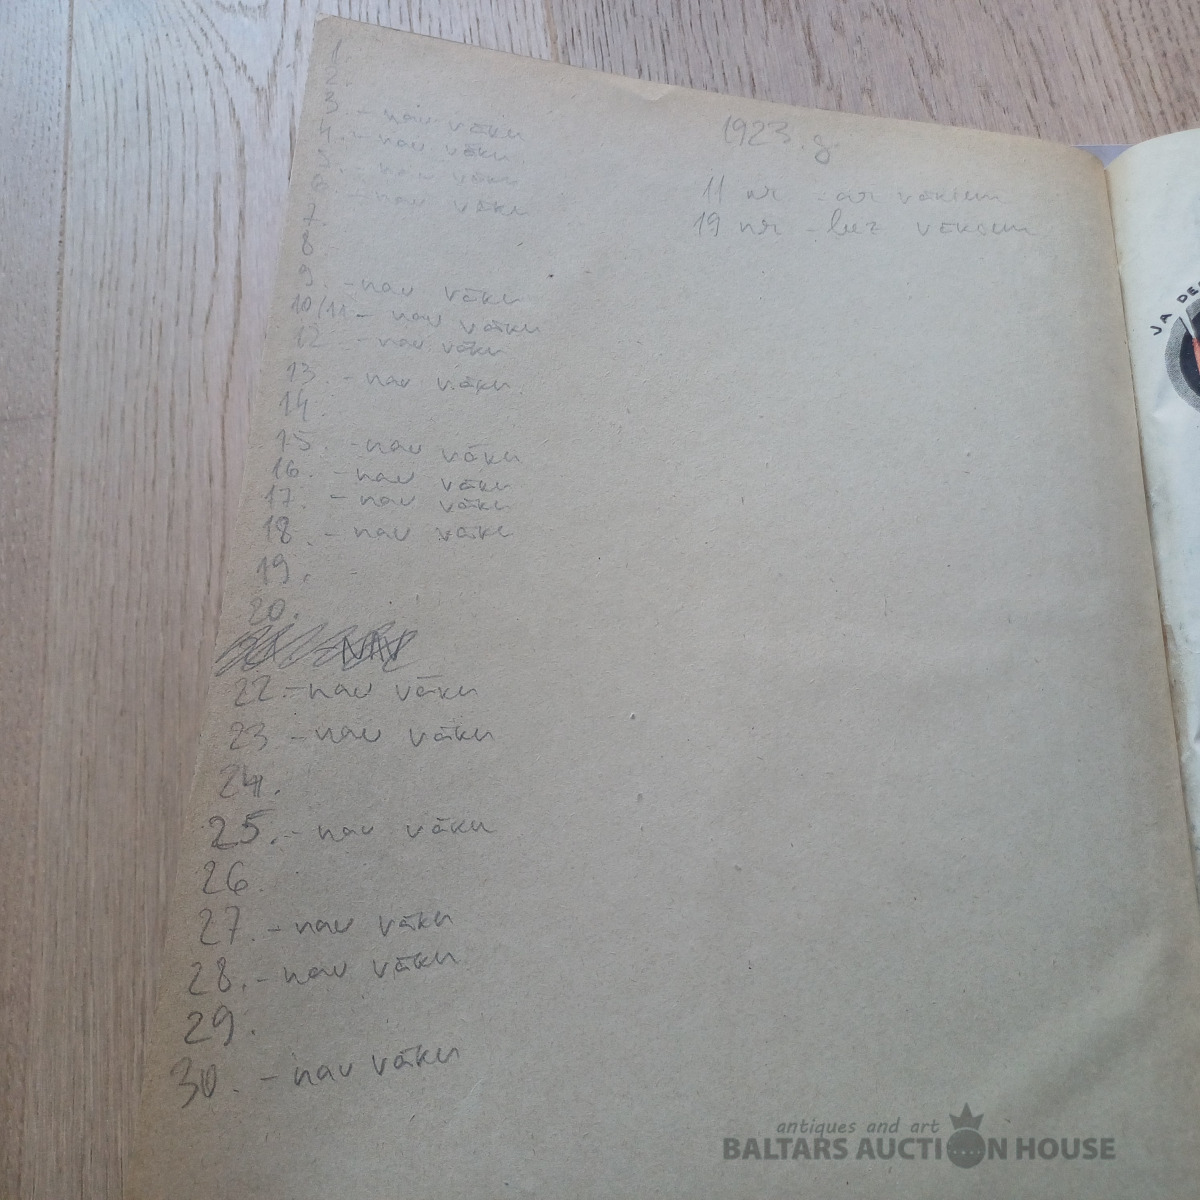 1.
2.
3. - nav vāku
4. - nav vāku
5. - nav vāku
6. - nav vāku
7.
8.
9. - nav vāku
10/11 - nav vāku
12 - nav vāku
13. - nav vāku
14.
15. - nav vāku
16. - nav vāku
17. - nav vāku
18. - nav vāku
19.
20.
22. - nav vāku
23 - nav vāku
24.
25. - nav vāku
26.
27. - nav vāku
28. - nav vāku
29.
30. - nav vāku
1923. g.
11 nr - ar vākiem
19 nr - bez vākiem
JA
antiques and art
BALTARS AUCTION HOUSE